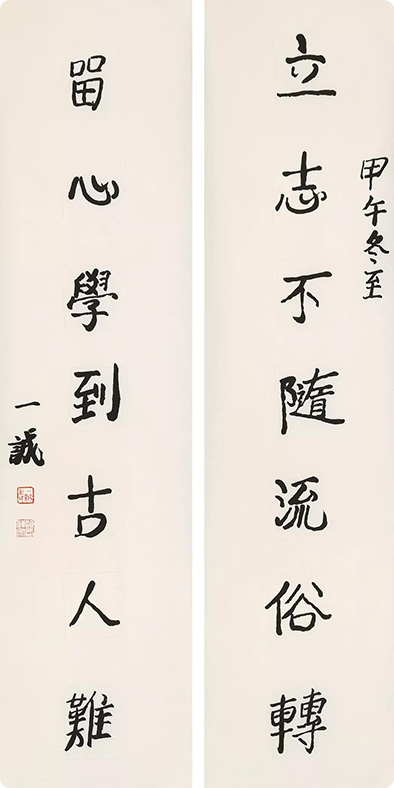 立志不隨流俗轉
甲午冬至
留心學到古人難
一誠